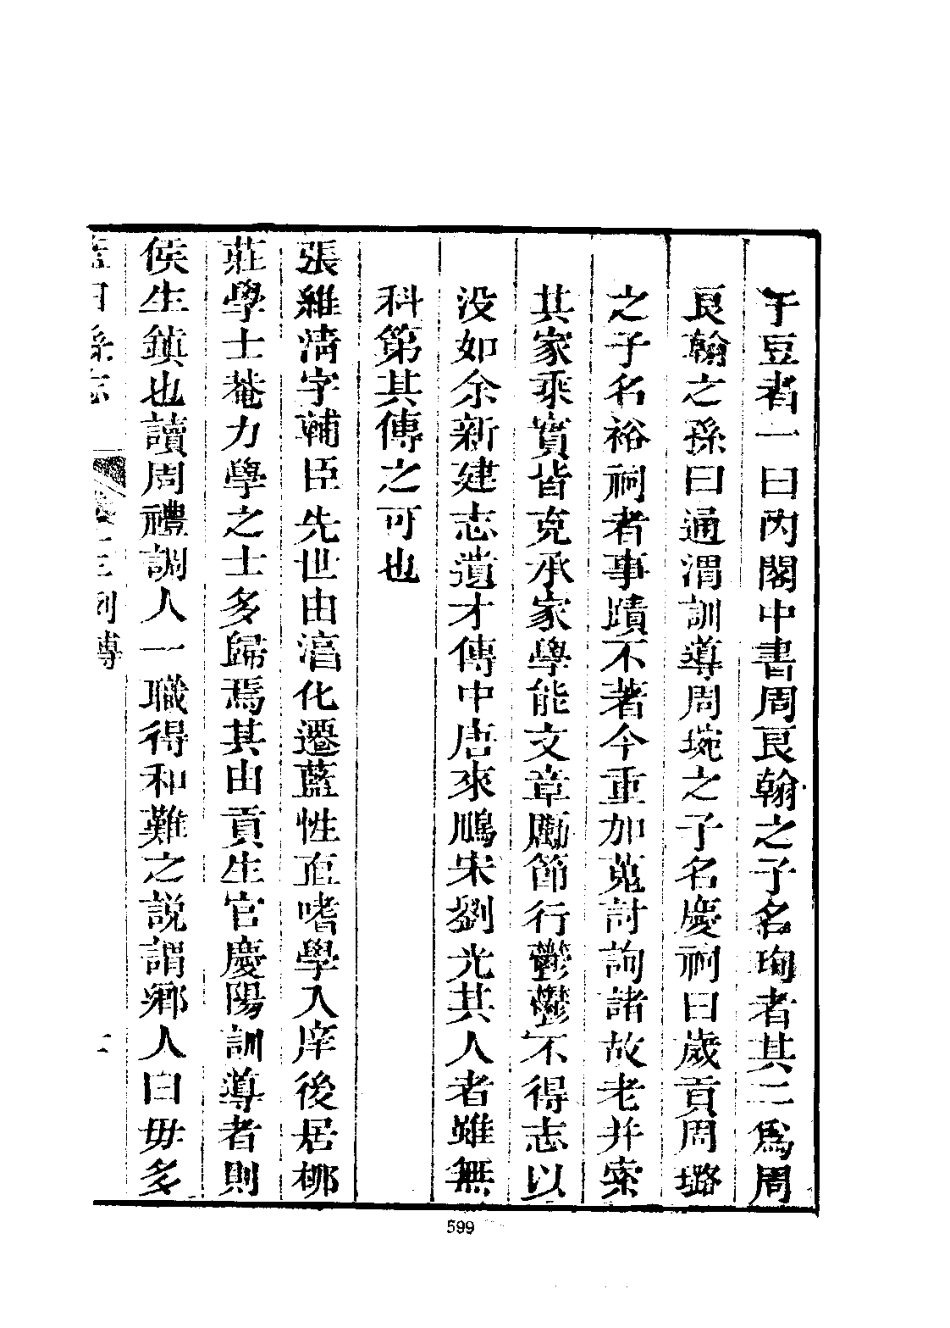 于豆者一曰內閣中書周良翰之子名珣者其二爲周
良翰之孫曰通渭訓導周琬之子名慶祠曰歲貢周璐
之子名裕祠者事蹟不著今重加蒐討詢諸故老并索
其家乘實皆克承家學能文章勵節行鬱鬱不得志以
没如余新建志遺才傳中唐來鵬宋劉光其人者雖無
科第其傳之可也
張維清字輔臣先世由湻化遷藍性直嗜學入庠後居櫛
莊學士菴力學之士多歸焉其由貢生官慶陽訓導者則
侯生鎮也讀周禮調人一職得和難之説謂鄉人曰毋多
藍田縣志 三列傳
599